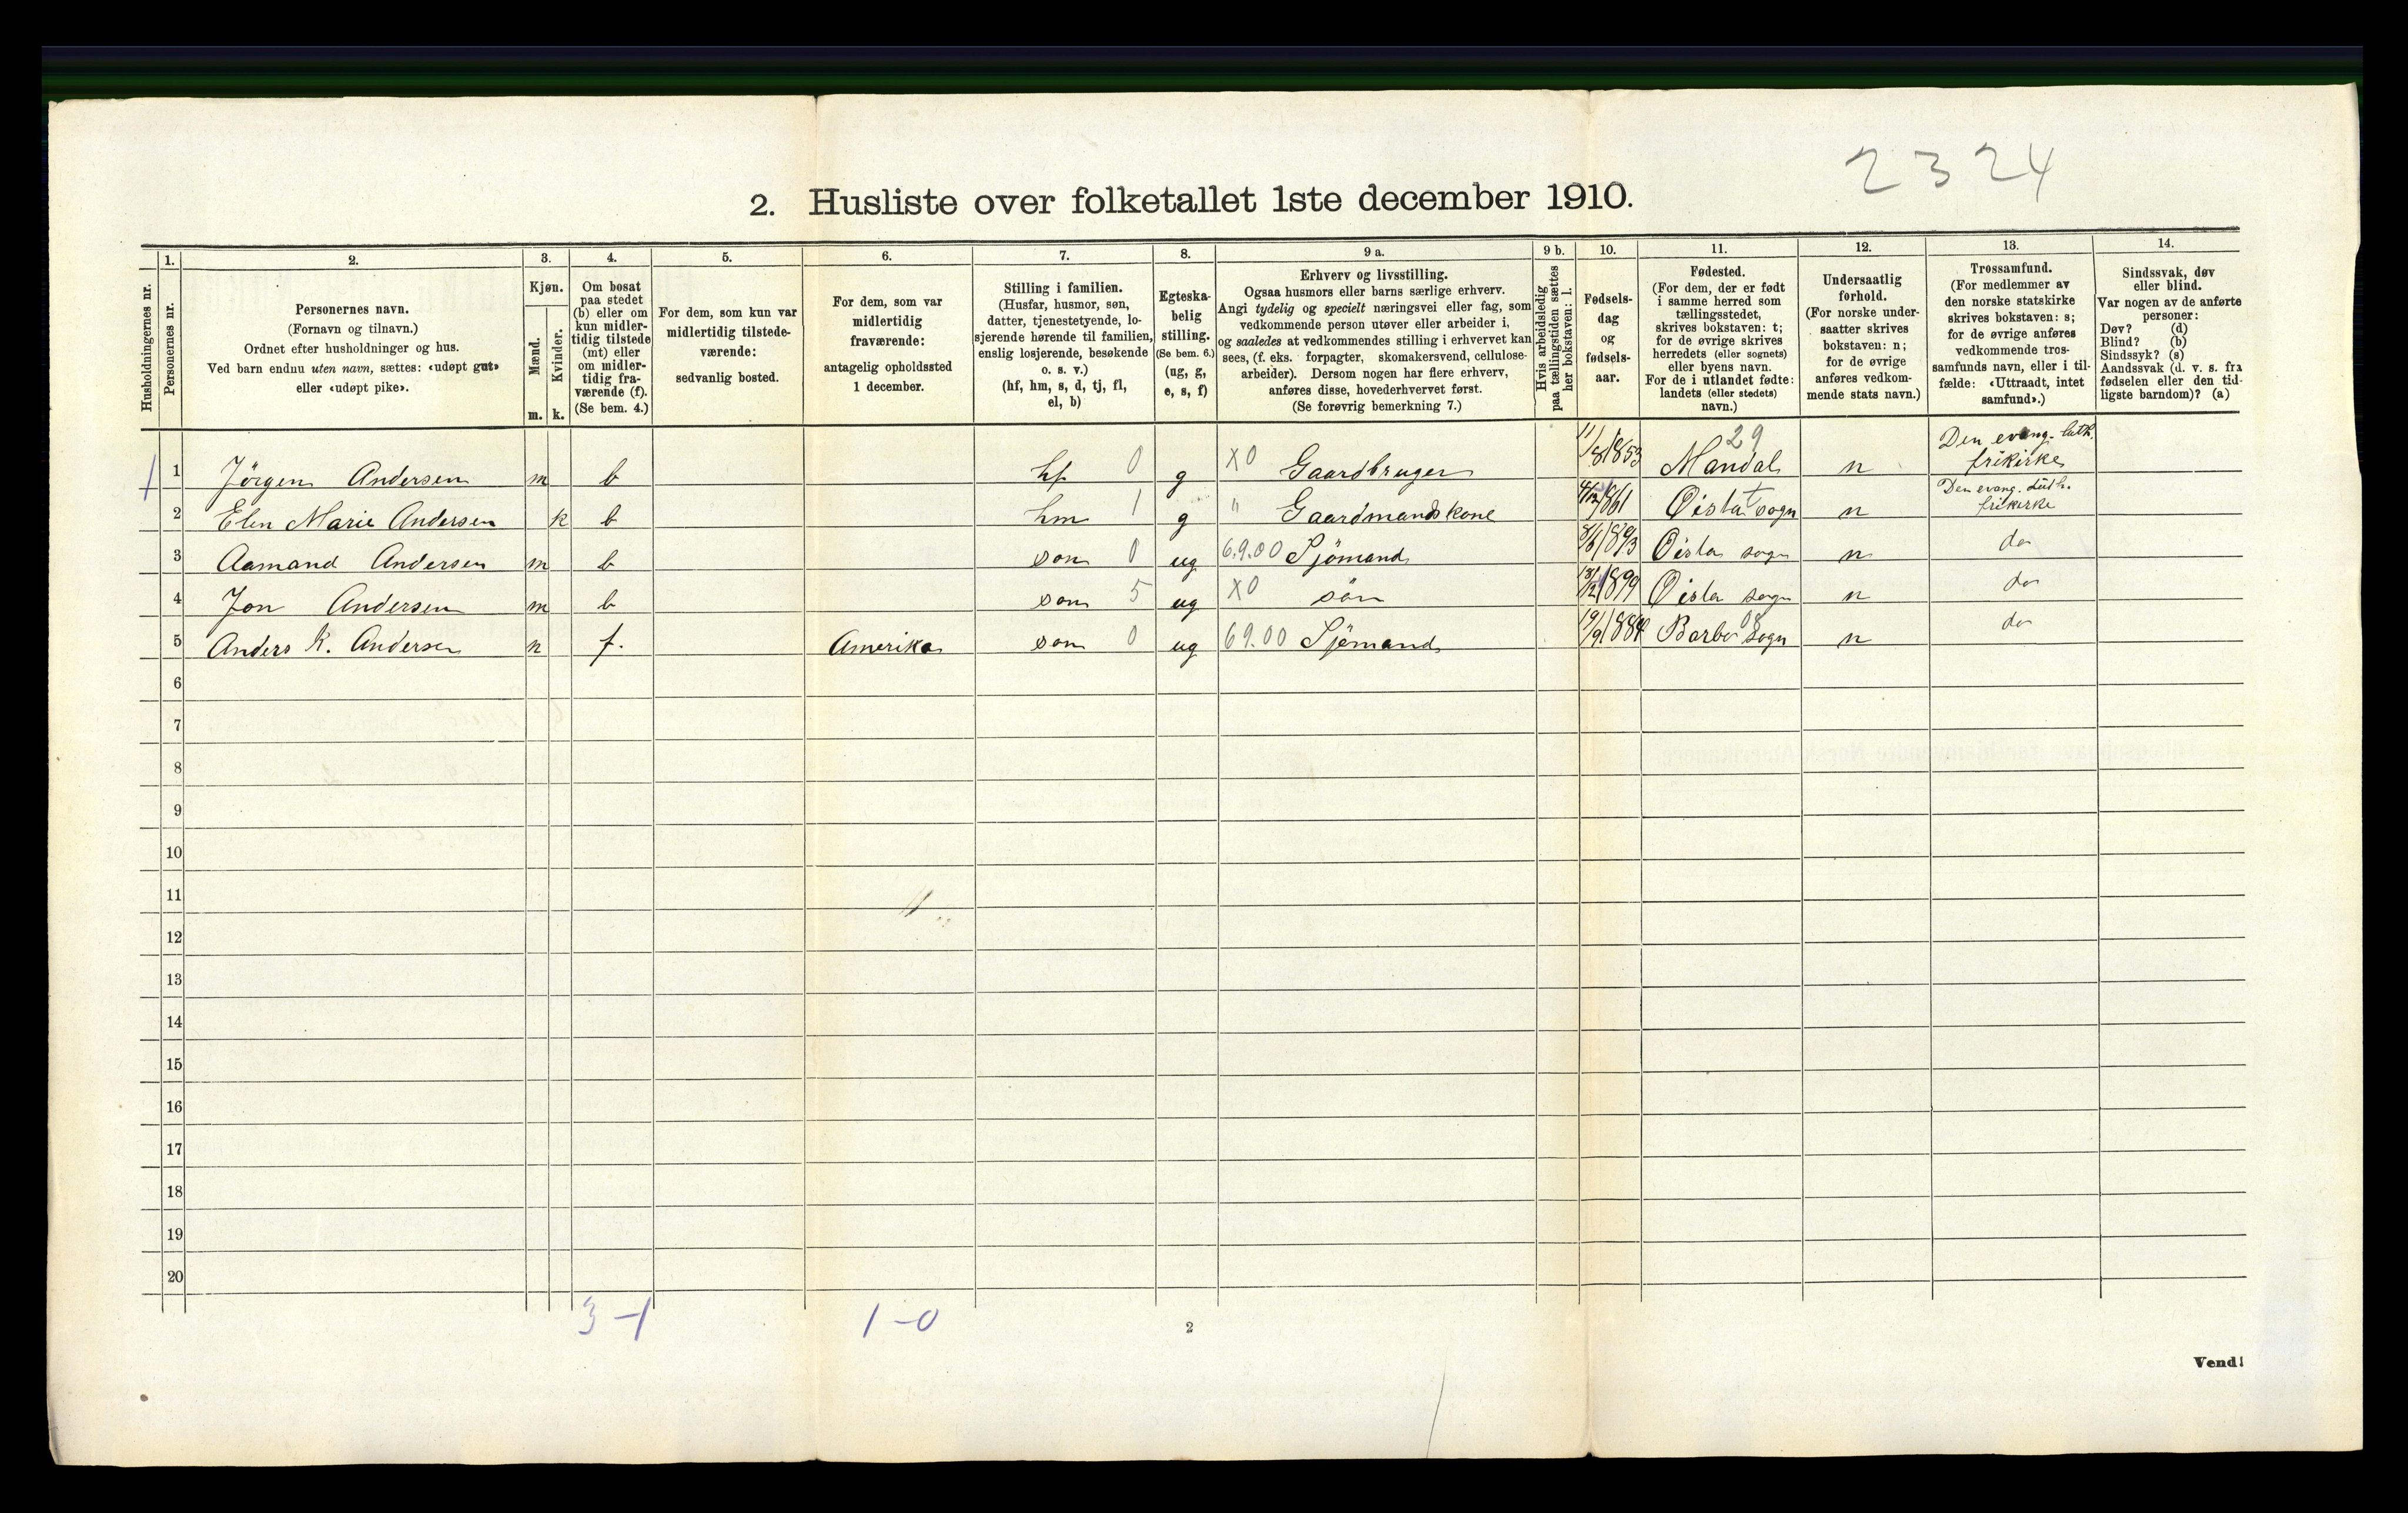 2324
2. Husliste over folketallet 1ste december 1910.
Husholdningernes nr.
1.
Personernes nr.
2.
Personernes navn.
(Fornavn og tilnavn.)
Ordnet efter husholdninger og hus.
Ved barn endnu uten navn, sættes: «udøpt gut»
eller «udøpt pike».
3.
Kjøn.
Mænd.
Kvinder.
m. k.
4.
Om bosat
paa stedet
(b) eller om
kun midler-
tidig tilstede
(mt) eller
om midler-
tidig fra-
værende (f).
(Se bem. 4.)
5.
For dem, som kun var
midlertidig tilstede-
værende:
sedvanlig bosted.
6.
For dem, som var
midlertidig
fraværende:
antagelig opholdssted
1 december.
7.
Stilling i familien.
(Husfar, husmor, søn,
datter, tjenestetyende, lo-
sjerende hørende til familien,
enslig losjerende, besøkende
o. s. v.)
(hf, hm, s, d, tj, fl,
el, b)
8.
Egteska-
belig
stilling.
(Se bem. 6.)
(ug, g,
e, s, f)
9 a.
Erhverv og livsstilling.
Ogsaa husmors eller barns særlige erhverv.
Angi tydelig og specielt næringsvei eller fag, som
vedkommende person utøver eller arbeider i,
og saaledes at vedkommendes stilling i erhvervet kan
sees, (f. eks. forpagter, skomakersvend, cellulose-
arbeider). Dersom nogen har flere erhverv,
anføres disse, hovederhvervet først.
(Se forøvrig bemerkning 7.)
9 b.
Hvis arbeidsledig
paa tællingstiden sættes
her bokstaven: l.
10.
Fødsels-
dag
og
fødsels-
aar.
11.
Fødested.
(For dem, der er født
i samme herred som
tællingsstedet,
skrives bokstaven: t;
for de øvrige skrives
herredets (eller sognets)
eller byens navn.
For de i utlandet fødte:
landets (eller stedets)
navn.)
12.
Undersaatlig
forhold.
(For norske under-
saatter skrives
bokstaven: n;
for de øvrige
anføres vedkom-
mende stats navn.)
13.
Trossamfund.
(For medlemmer av
den norske statskirke
skrives bokstaven: s;
for de øvrige anføres
vedkommende tros-
samfunds navn, eller i til-
fælde: «Uttraadt, intet
samfund».)
14.
Sindssvak, døv
eller blind.
Var nogen av de anførte
personer:
Døv? (d)
Blind? (b)
Sindssyk? (s)
Aandssvak (d. v. s. fra
fødselen eller den tid-
ligste barndom)? (a)
1 1 Jörgen Andersen m b hf 0 g X0 Gaardbruger 11/8 1853 29 Mandal n Den evang. luth. frikirke
2 Elen Marie Andersen k b hm 1 g " Gaardmandskone 4/12 1861 Öista t sogn n Den evang. luth. frikirke
3 Aamand Andersen m b son 0 ug 6.9.00 Sjömand 1893 Öista sogn n do
4 Jon Andersen m b son 5 ug X0 sön 1899 Öista sogn n do
5 Anders K. Andersen m f. Amerika son 0 ug 69.00 Sjömand 19/9 1884 Barbo 08 sogn n do
6
7
8
9
10
11
12
13
14
15
16
17
18
19
20
3-1 1-0
2
Vend!